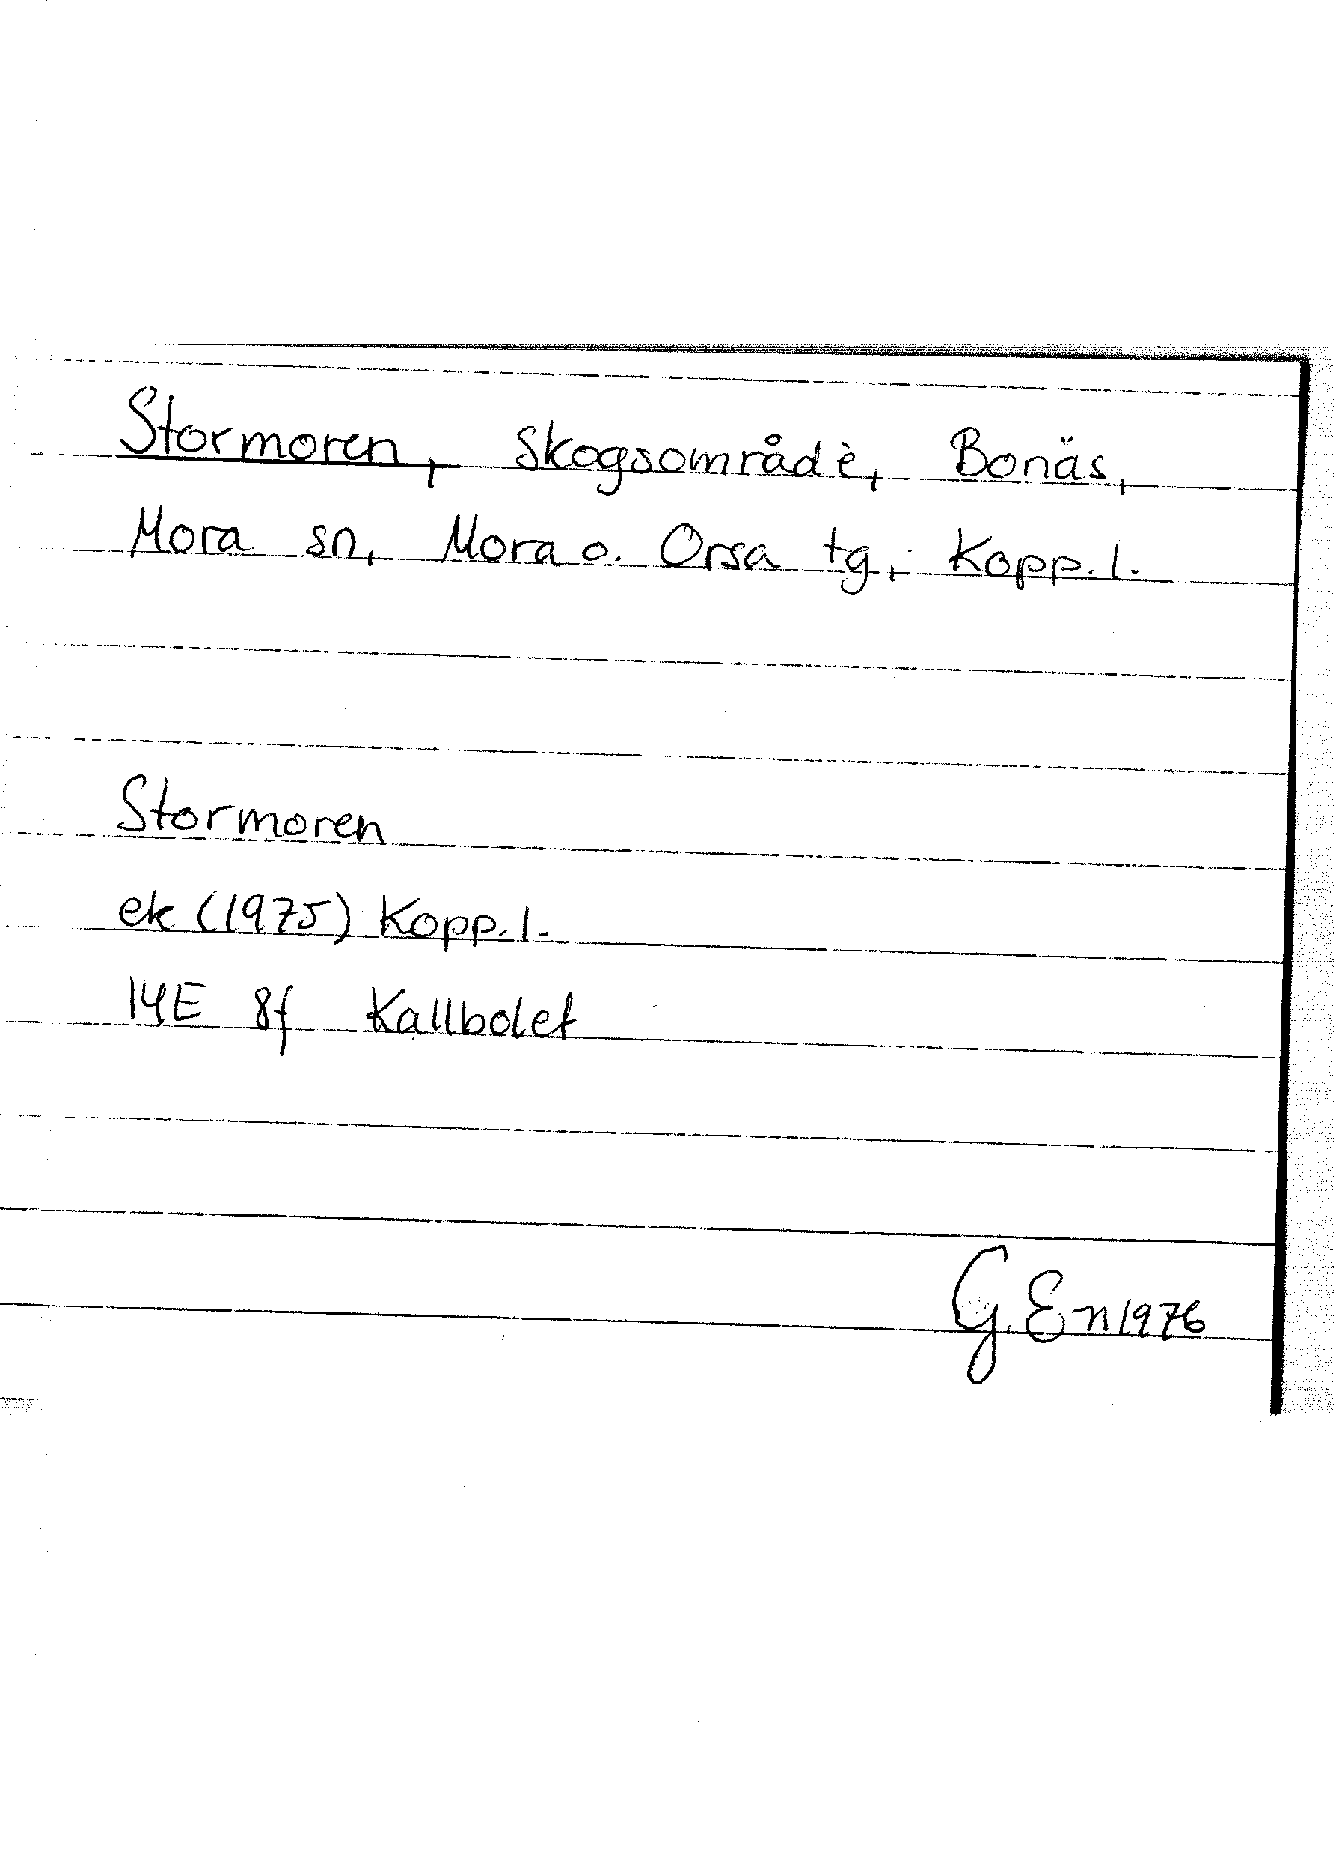 Stormoren, skogsområde, Bonäs,
Mora sn, Mora o. Orsa tg, Kopp.l.
Stormoren
ek (1975) Kopp.l.
14E 8f Kallbolet
G. En 1976